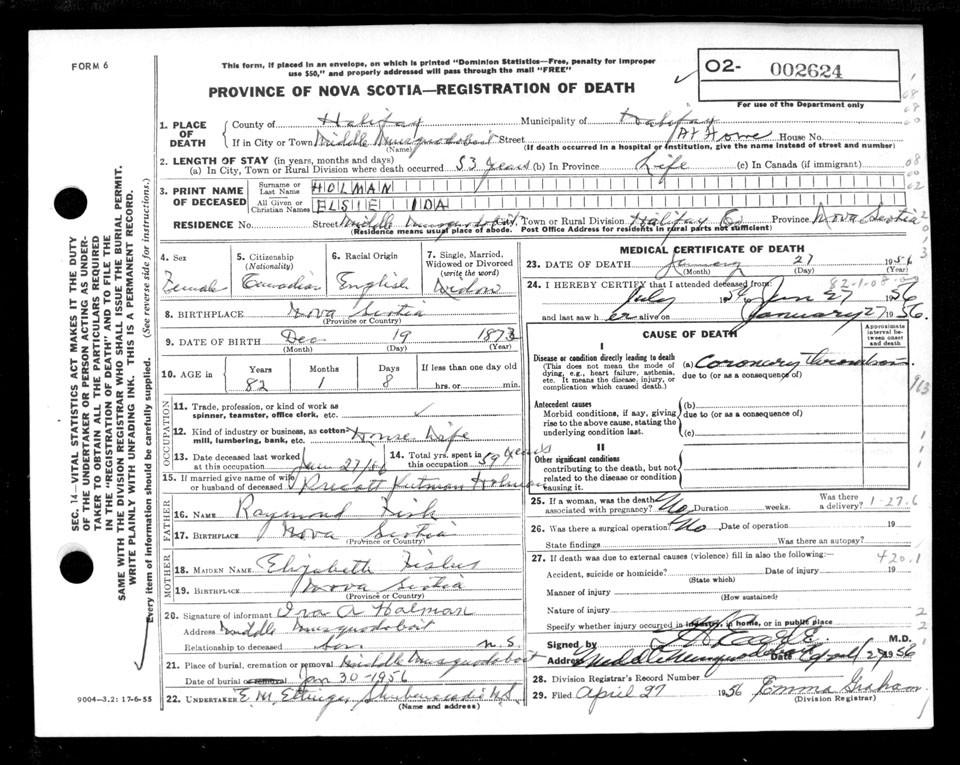 FORM 6
This form, if placed in an envelope, on which is printed "Dominion Statistics—Free, penalty for improper
use $50," and properly addressed will pass through the mail "FREE"
PROVINCE OF NOVA SCOTIA—REGISTRATION OF DEATH
O2- 002624
For use of the Department only
1. PLACE OF DEATH
County of Halifax Municipality of Halifax
If in City or Town Middle Musquodoboit Street At Home House No.
(Name) (If death occurred in a hospital or institution, give the name instead of street and number)
2. LENGTH OF STAY (in years, months and days)
(a) In City, Town or Rural Division where death occurred 53 years (b) In Province Life (c) In Canada (if immigrant)
3. PRINT NAME OF DECEASED
Surname or Last Name HOLMAN
All Given or Christian Names ELSIE IDA
RESIDENCE No. Street Middle Musquodoboit City, Town or Rural Division Halifax Co Province Nova Scotia
(Residence means usual place of abode. Post Office Address for residents in rural parts not sufficient)
4. Sex Female
5. Citizenship (Nationality) Canadian
6. Racial Origin English
7. Single, Married, Widowed or Divorced (write the word) Widow
8. BIRTHPLACE Nova Scotia
(Province or Country)
9. DATE OF BIRTH Dec 19 1873
(Month) (Day) (Year)
10. AGE in Years Months Days If less than one day old
82 1 8 hrs. or min.
OCCUPATION
11. Trade, profession, or kind of work as
spinner, teamster, office clerk, etc. ✓
12. Kind of industry or business, as cotton
mill, lumbering, bank, etc. House Wife
13. Date deceased last worked
at this occupation Jan 27/56
14. Total yrs. spent in
this occupation 59 years
15. If married give name of wife
or husband of deceased Prescott Putman Holman
FATHER
16. NAME Raymond Fisk
17. BIRTHPLACE Nova Scotia
(Province or Country)
MOTHER
18. MAIDEN NAME Elizabeth
19. BIRTHPLACE Nova Scotia
(Province or Country)
20. Signature of informant Ira A Holman
Address Middle Musquodoboit
Relationship to deceased Son. N.S.
21. Place of burial, cremation or removal Middle Musquodoboit
Date of burial or removal Jan 30-1956
22. UNDERTAKER E.M. Ettinger, Shubenacadie N.S.
(Name and address)
MEDICAL CERTIFICATE OF DEATH
23. DATE OF DEATH January 27 1956
(Month) (Day) (Year)
24. I HEREBY CERTIFY that I attended deceased from: 82-1-08
July 1954 to Jan 27 1956
and last saw her alive on January 27 1956.
CAUSE OF DEATH
Approximate interval between onset and death
I
Disease or condition directly leading to death (a) Coronary Thrombosis
(This does not mean the mode of due to (or as a consequence of)
dying, e.g., heart failure, asthenia,
etc. It means the disease, injury, or
complication which caused death.)
Antecedent causes (b)
Morbid conditions, if any, giving due to (or as a consequence of)
rise to the above cause, stating the
underlying condition last. (c)
II
Other significant conditions
contributing to the death, but not
related to the disease or condition
causing it.
25. If a woman, was the death
associated with pregnancy? No Duration weeks. Was there a delivery? 1-27.6
26. Was there a surgical operation? No Date of operation 19
State findings Was there an autopsy?
27. If death was due to external causes (violence) fill in also the following:— 420.1
Accident, suicide or homicide? Date of injury 19
(State which)
Manner of injury
(How sustained)
Nature of injury
Specify whether injury occurred in industry, in home, or in public place
Signed by M.D.
Address Middle Musquodoboit Date April 27 1956
28. Division Registrar's Record Number
29. Filed April 27 1956 Emma Graham
(Division Registrar)
SEC. 14—VITAL STATISTICS ACT MAKES IT THE DUTY
OF THE UNDERTAKER OR PERSON ACTING AS UNDER-
TAKER TO OBTAIN ALL THE PARTICULARS REQUIRED
IN THE "REGISTRATION OF DEATH" AND TO FILE THE
SAME WITH THE DIVISION REGISTRAR WHO SHALL ISSUE THE BURIAL PERMIT.
WRITE PLAINLY WITH UNFADING INK. THIS IS A PERMANENT RECORD.
Every item of information should be carefully supplied. (See reverse side for instructions.)
9004—3.2: 17-6-55